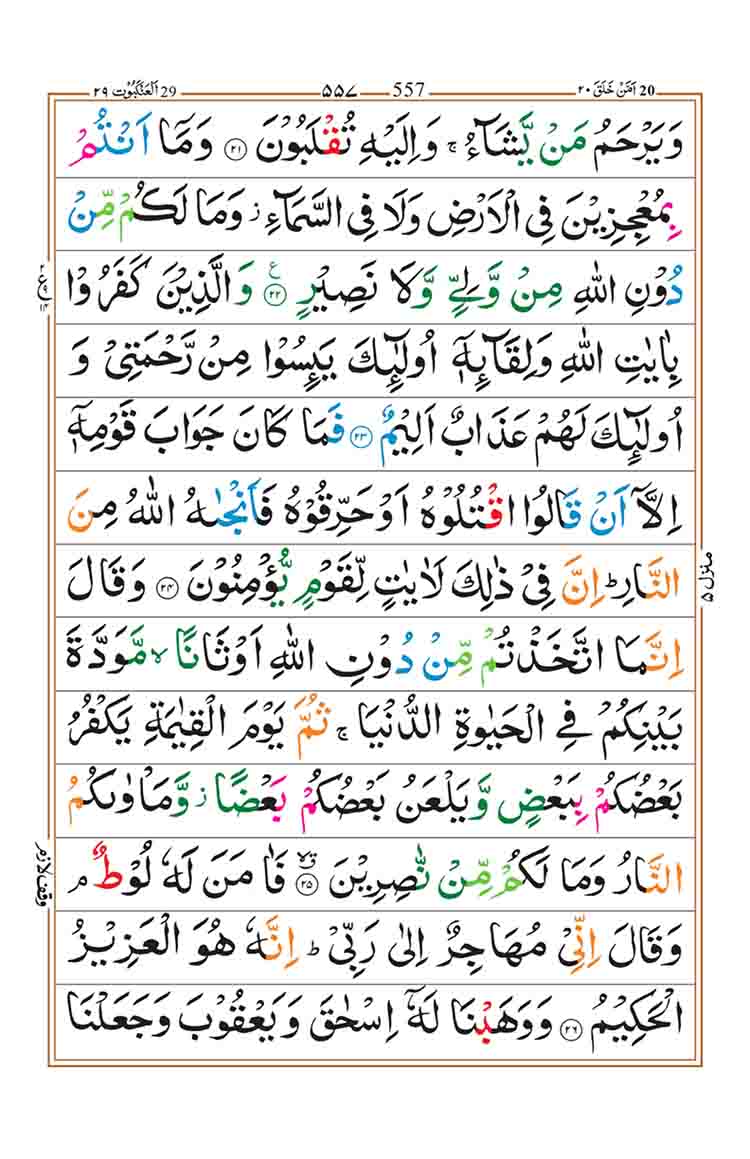 20 اَمَّنْ خَلَقَ ٢٠ 557 ٥٥٧ 29 اَلْعَنْكَبُوْت ٢٩
وَيَرْحَمُ مَنْ يَّشَآءُ ۚ وَاِلَيْهِ تُقْلَبُوْنَ ۝٢١ وَمَآ اَنْتُمْ
بِمُعْجِزِيْنَ فِي الْاَرْضِ وَلَا فِي السَّمَآءِ ۡ وَمَا لَكُمْ مِّنْ
دُوْنِ اللّٰهِ مِنْ وَّلِيٍّ وَّلَا نَصِيْرٍ ۝٢٢ ع وَالَّذِيْنَ كَفَرُوْا
بِاٰيٰتِ اللّٰهِ وَلِقَآئِهٖٓ اُولٰٓئِكَ يَئِسُوْا مِنْ رَّحْمَتِيْ وَ
اُولٰٓئِكَ لَهُمْ عَذَابٌ اَلِيْمٌ ۝٢٣ فَمَا كَانَ جَوَابَ قَوْمِهٖٓ
اِلَّآ اَنْ قَالُوا اقْتُلُوْهُ اَوْ حَرِّقُوْهُ فَاَنْجٰىهُ اللّٰهُ مِنَ
النَّارِ ؕ اِنَّ فِيْ ذٰلِكَ لَاٰيٰتٍ لِّقَوْمٍ يُّؤْمِنُوْنَ ۝٢٤ وَقَالَ
اِنَّمَا اتَّخَذْتُمْ مِّنْ دُوْنِ اللّٰهِ اَوْثَانًا ۙ مَّوَدَّةَ
بَيْنِكُمْ فِي الْحَيٰوةِ الدُّنْيَا ۚ ثُمَّ يَوْمَ الْقِيٰمَةِ يَكْفُرُ
بَعْضُكُمْ بِبَعْضٍ وَّيَلْعَنُ بَعْضُكُمْ بَعْضًا ۡ وَّمَاْوٰىكُمُ
النَّارُ وَمَا لَكُمْ مِّنْ نّٰصِرِيْنَ ۝٢٥ فَاٰمَنَ لَهٗ لُوْطٌ ۘ
وَقَالَ اِنِّيْ مُهَاجِرٌ اِلٰى رَبِّيْ ؕ اِنَّهٗ هُوَ الْعَزِيْزُ
الْحَكِيْمُ ۝٢٦ وَوَهَبْنَا لَهٗٓ اِسْحٰقَ وَيَعْقُوْبَ وَجَعَلْنَا
منزل ٥
وقف لازم